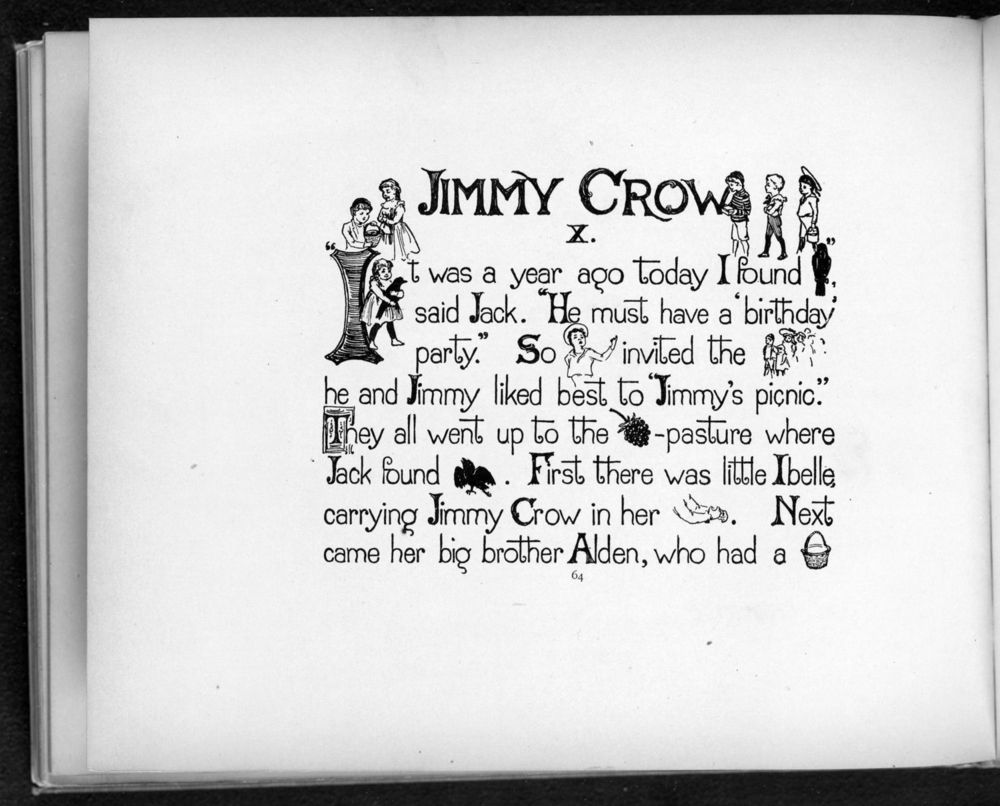 JIMMY CROW
X.
"It was a year ago today I found ",
said Jack. "He must have a 'birthday'
party." So invited the
he and Jimmy liked best to "Jimmy's picnic."
They all went up to the -pasture where
Jack found . First there was little Ibelle,
carrying Jimmy Crow in her . Next
came her big brother Alden, who had a
64